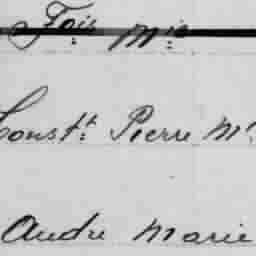 Fois Mie
Constt: Pierre Mr
Andre Marie